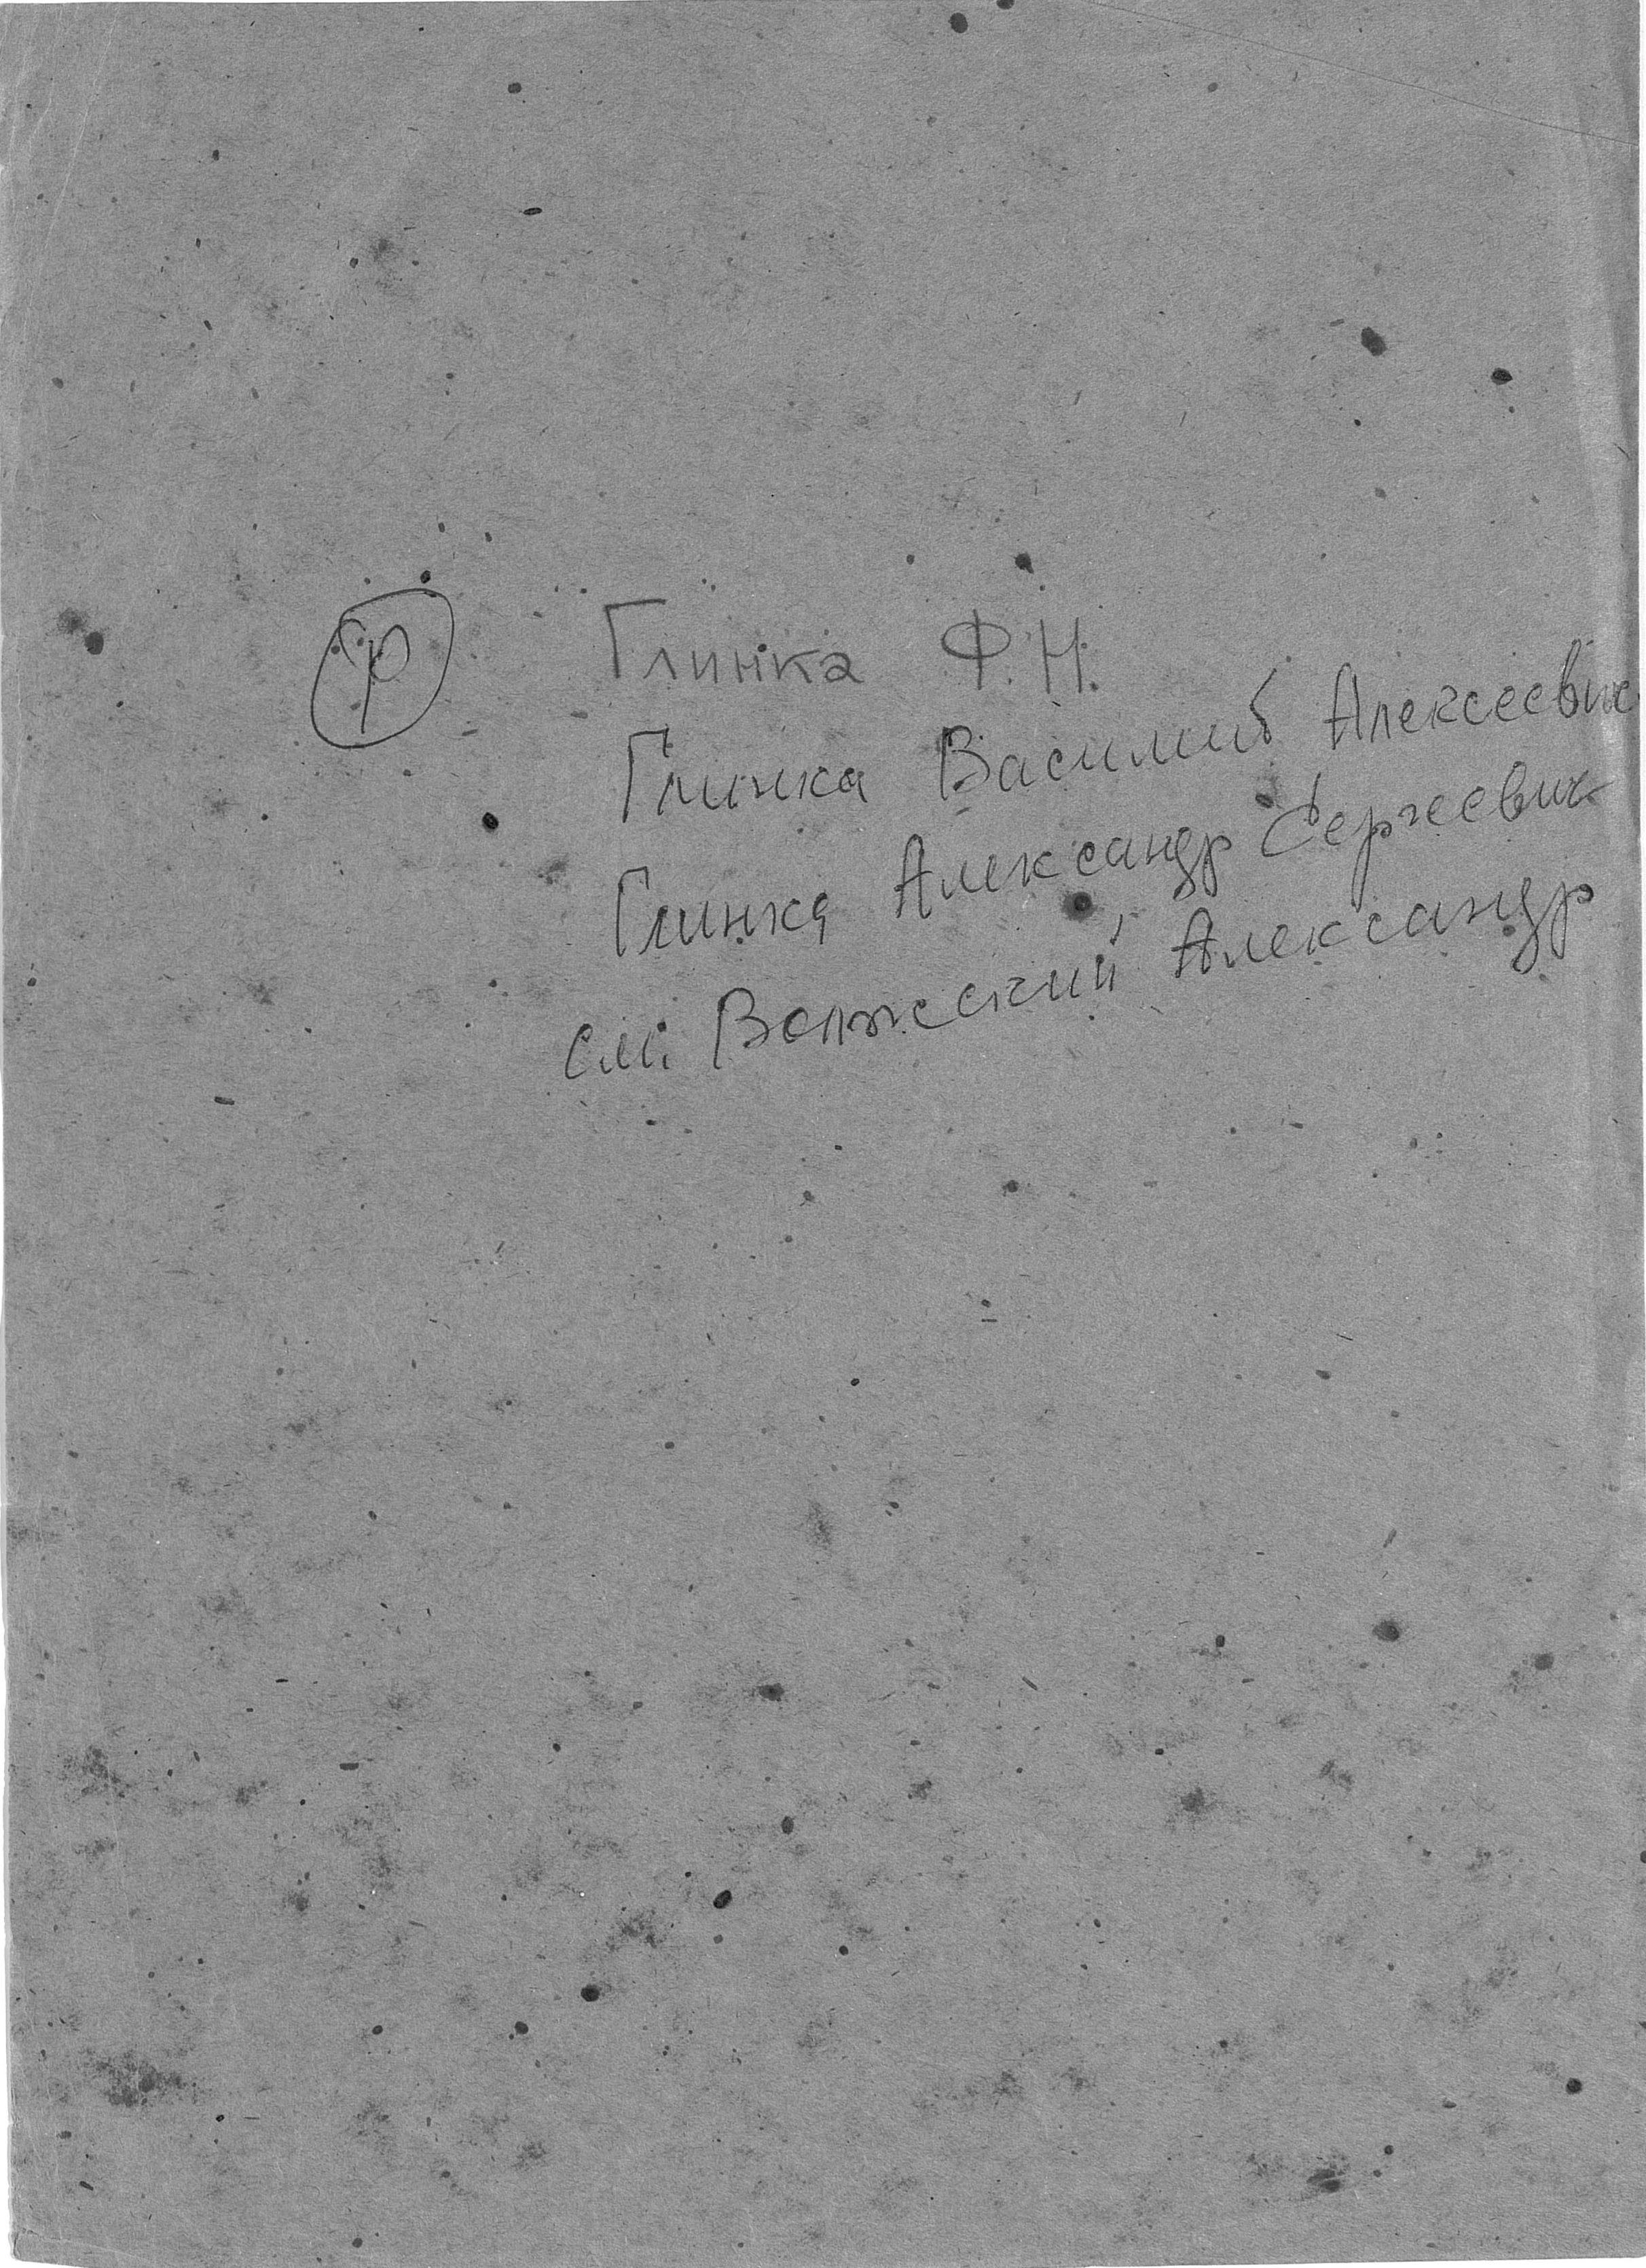 р Глинка Ф.Н.
Глинка Василий Алексеевич
Глинка Александр Сергеевич
см. Волжский Александр